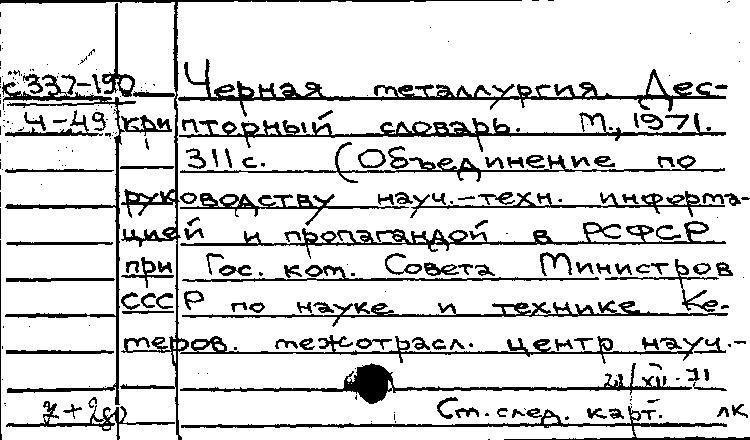 с337-190 Черная металлургия. Дес-
4-49 криптoрный словарь. М., 1971.
311 с. (Объединение по
руководству науч.-техн. информа-
цией и пропагандой в РСФСР
при Гос. ком. Совета Министров
СССР по науке и технике Ке-
меров. межотрасл. центр науч.-
XII-71
7+280 См. след. карт. лк